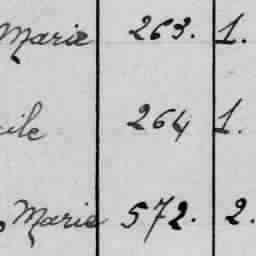 Marie 263. 1.
ile 264 1.
Marie 572. 2.